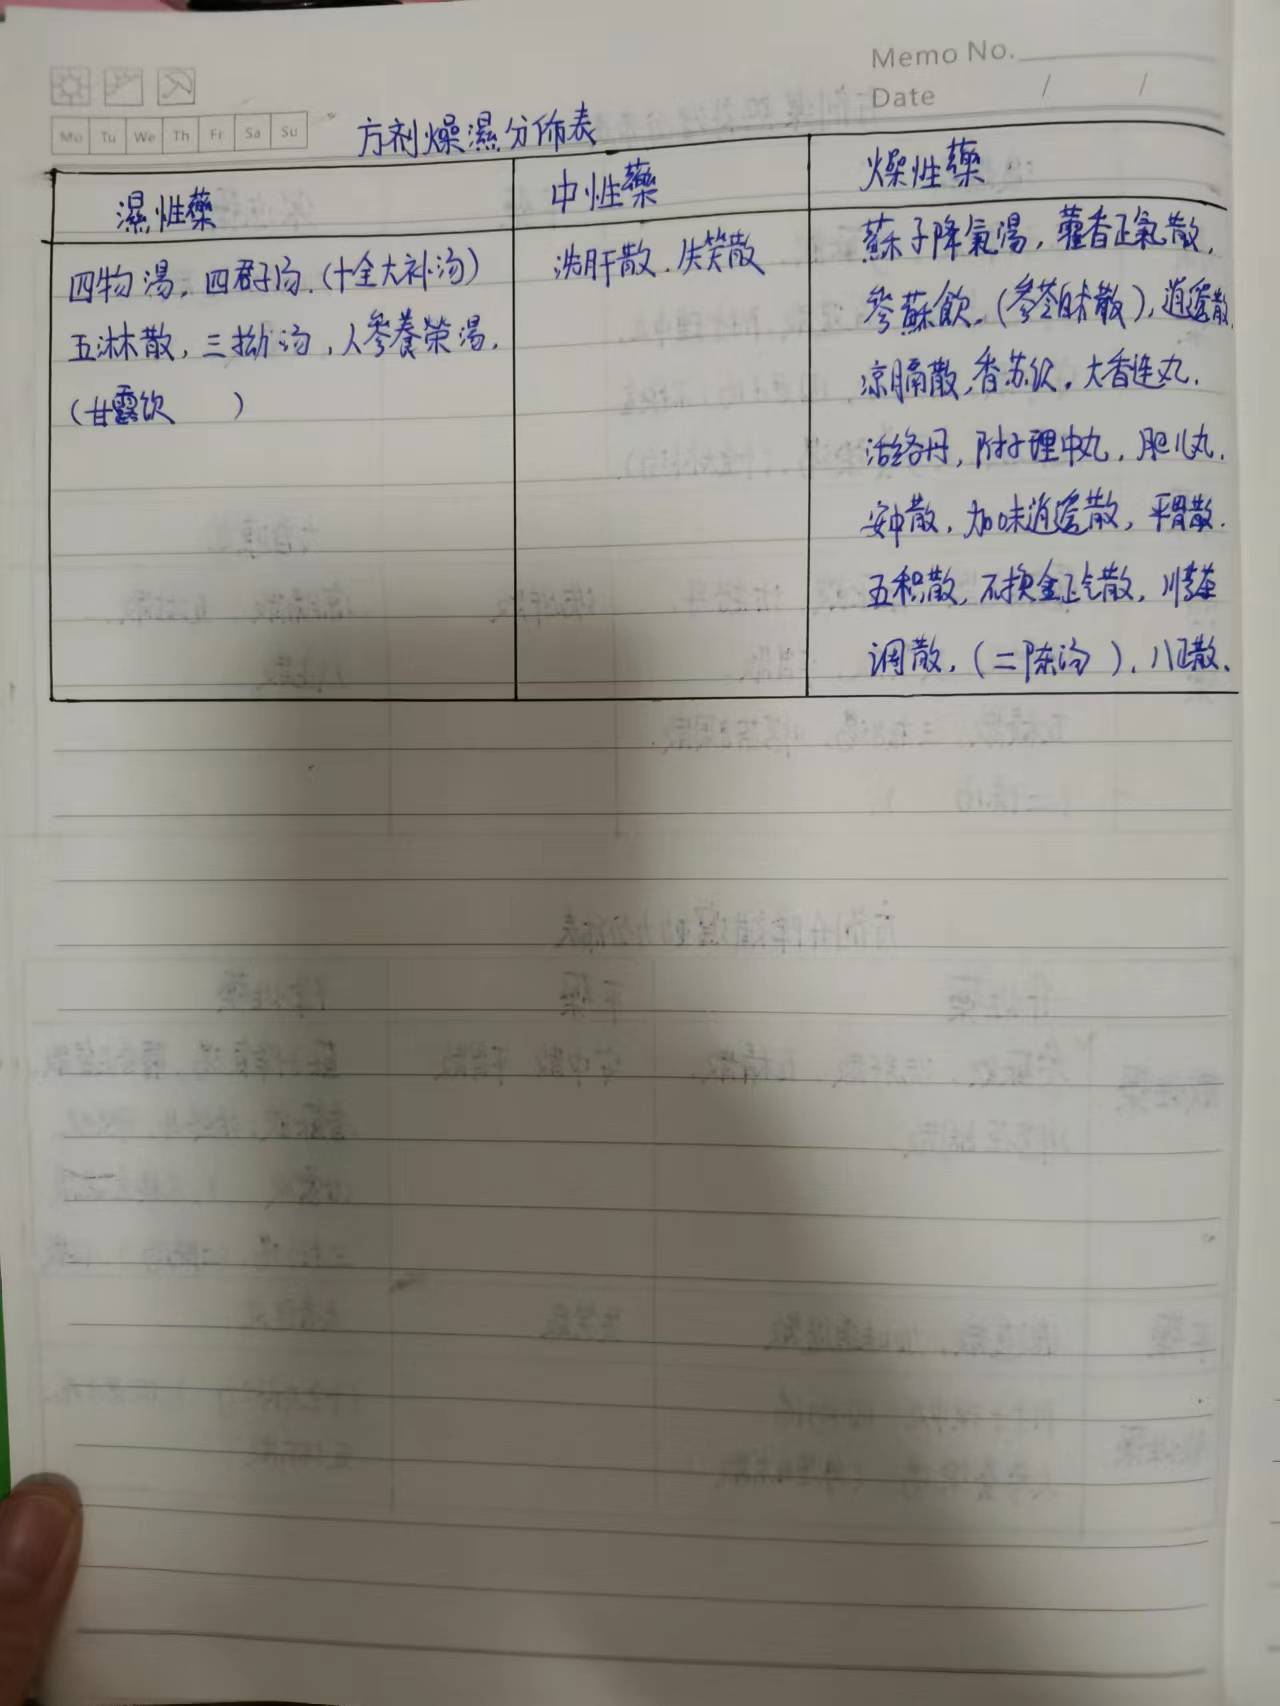 Memo No.
Date / /
Mo Tu We Th Fr Sa Su
方剂燥濕分佈表
濕性藥 中性藥 燥性藥
四物湯, 四君子汤, (十全大补汤)
五淋散, 三拗汤, 人參養榮湯,
(甘露饮 )
洗肝散, 失笑散
蘇子降氣湯, 藿香正氣散,
參蘇飲, (參苓白术散), 逍遥散,
凉膈散, 香苏饮, 大香连丸,
活络丹, 附子理中丸, 胆八丸,
安中散, 加味逍遥散, 平胃散,
五积散, 不换金正气散, 川芎茶
调散, (二陈汤 ), 八正散,